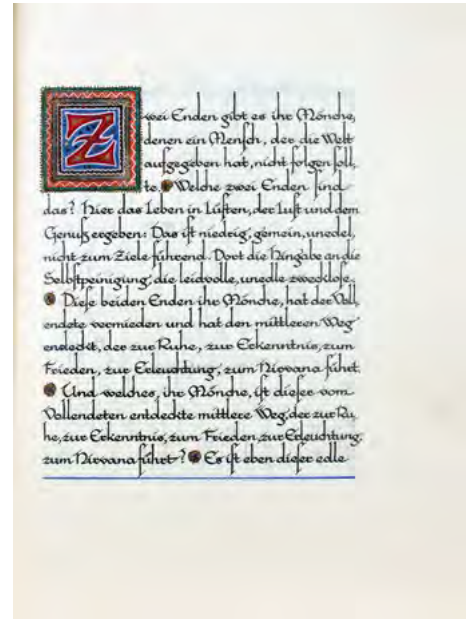 Zwei Enden gibt es ihr Mönche,
denen ein Mensch, der die Welt
aufgegeben hat, nicht folgen soll,
te. Welche zwei Enden sind
das? Hier das Leben in Lüsten, der Lust und dem
Genuß ergeben: Das ist niedrig, gemein, unedel,
nicht zum Ziele führend. Dort die Hingabe an die
Selbstpeinigung, die leidvolle, unedle zwecklose.
Diese beiden Enden ihr Mönche, hat der Voll,
endete vermieden und hat den mittleren Weg
entdeckt, der zur Ruhe, zur Erkenntnis, zum
Frieden, zur Erleuchtung, zum Nirvana führt.
Und welches, ihr Mönche, ist dieser vom
Vollendeten entdeckte mittlere Weg, der zur Ru,
he, zur Erkenntnis, zum Frieden, zur Erleuchtung,
zum Nirvana führt? Es ist eben dieser edle